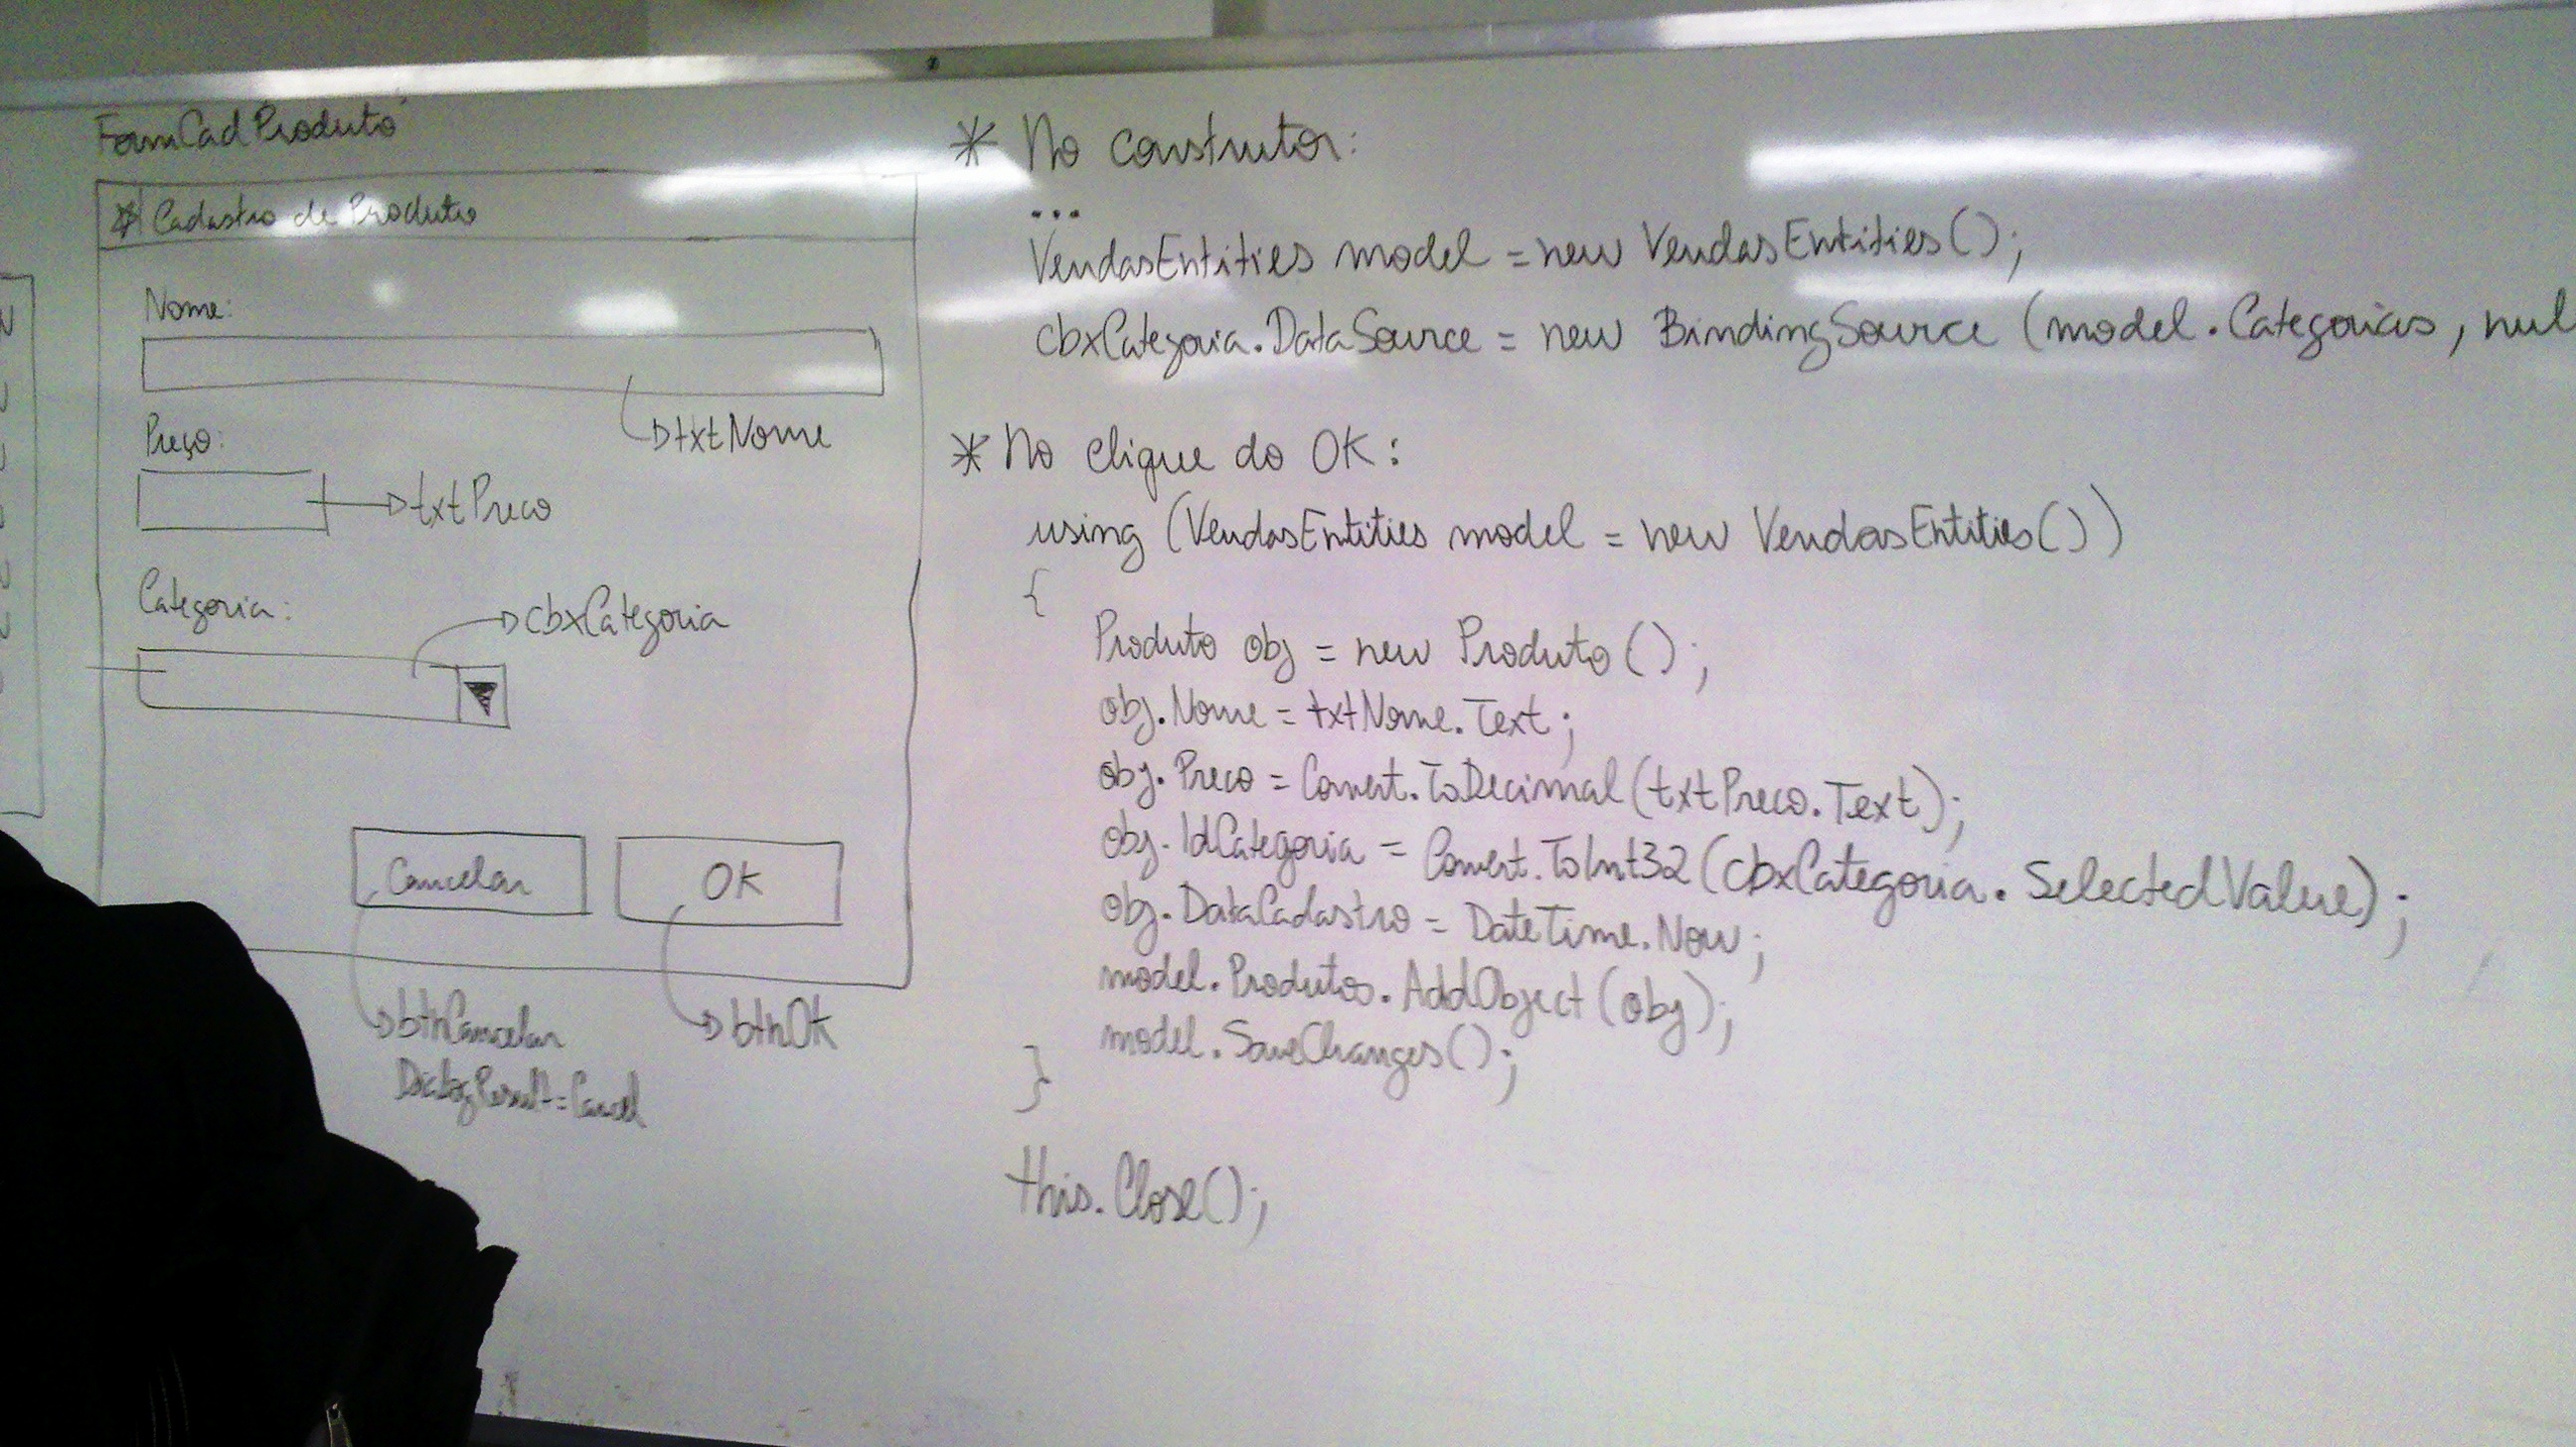 FormCadProduto
Cadastro de Produto
Nome:
txtNome
Preço:
txtPreco
Categoria:
cbxCategoria
Cancelar
OK
btnCancelar
DialogResult=Cancel
btnOK
* No construtor:
...
VendasEntities model = new VendasEntities();
cbxCategoria.DataSource = new BindingSource (model.Categorias, nul
* No clique do OK:
using (VendasEntities model = new VendasEntities())
{
Produto obj = new Produto();
obj.Nome = txtNome.Text;
obj.Preco = Convert.ToDecimal(txtPreco.Text);
obj.IdCategoria = Convert.ToInt32(cbxCategoria.SelectedValue);
obj.DataCadastro = DateTime.Now;
model.Produtos.AddObject(obj);
model.SaveChanges();
}
this.Close();